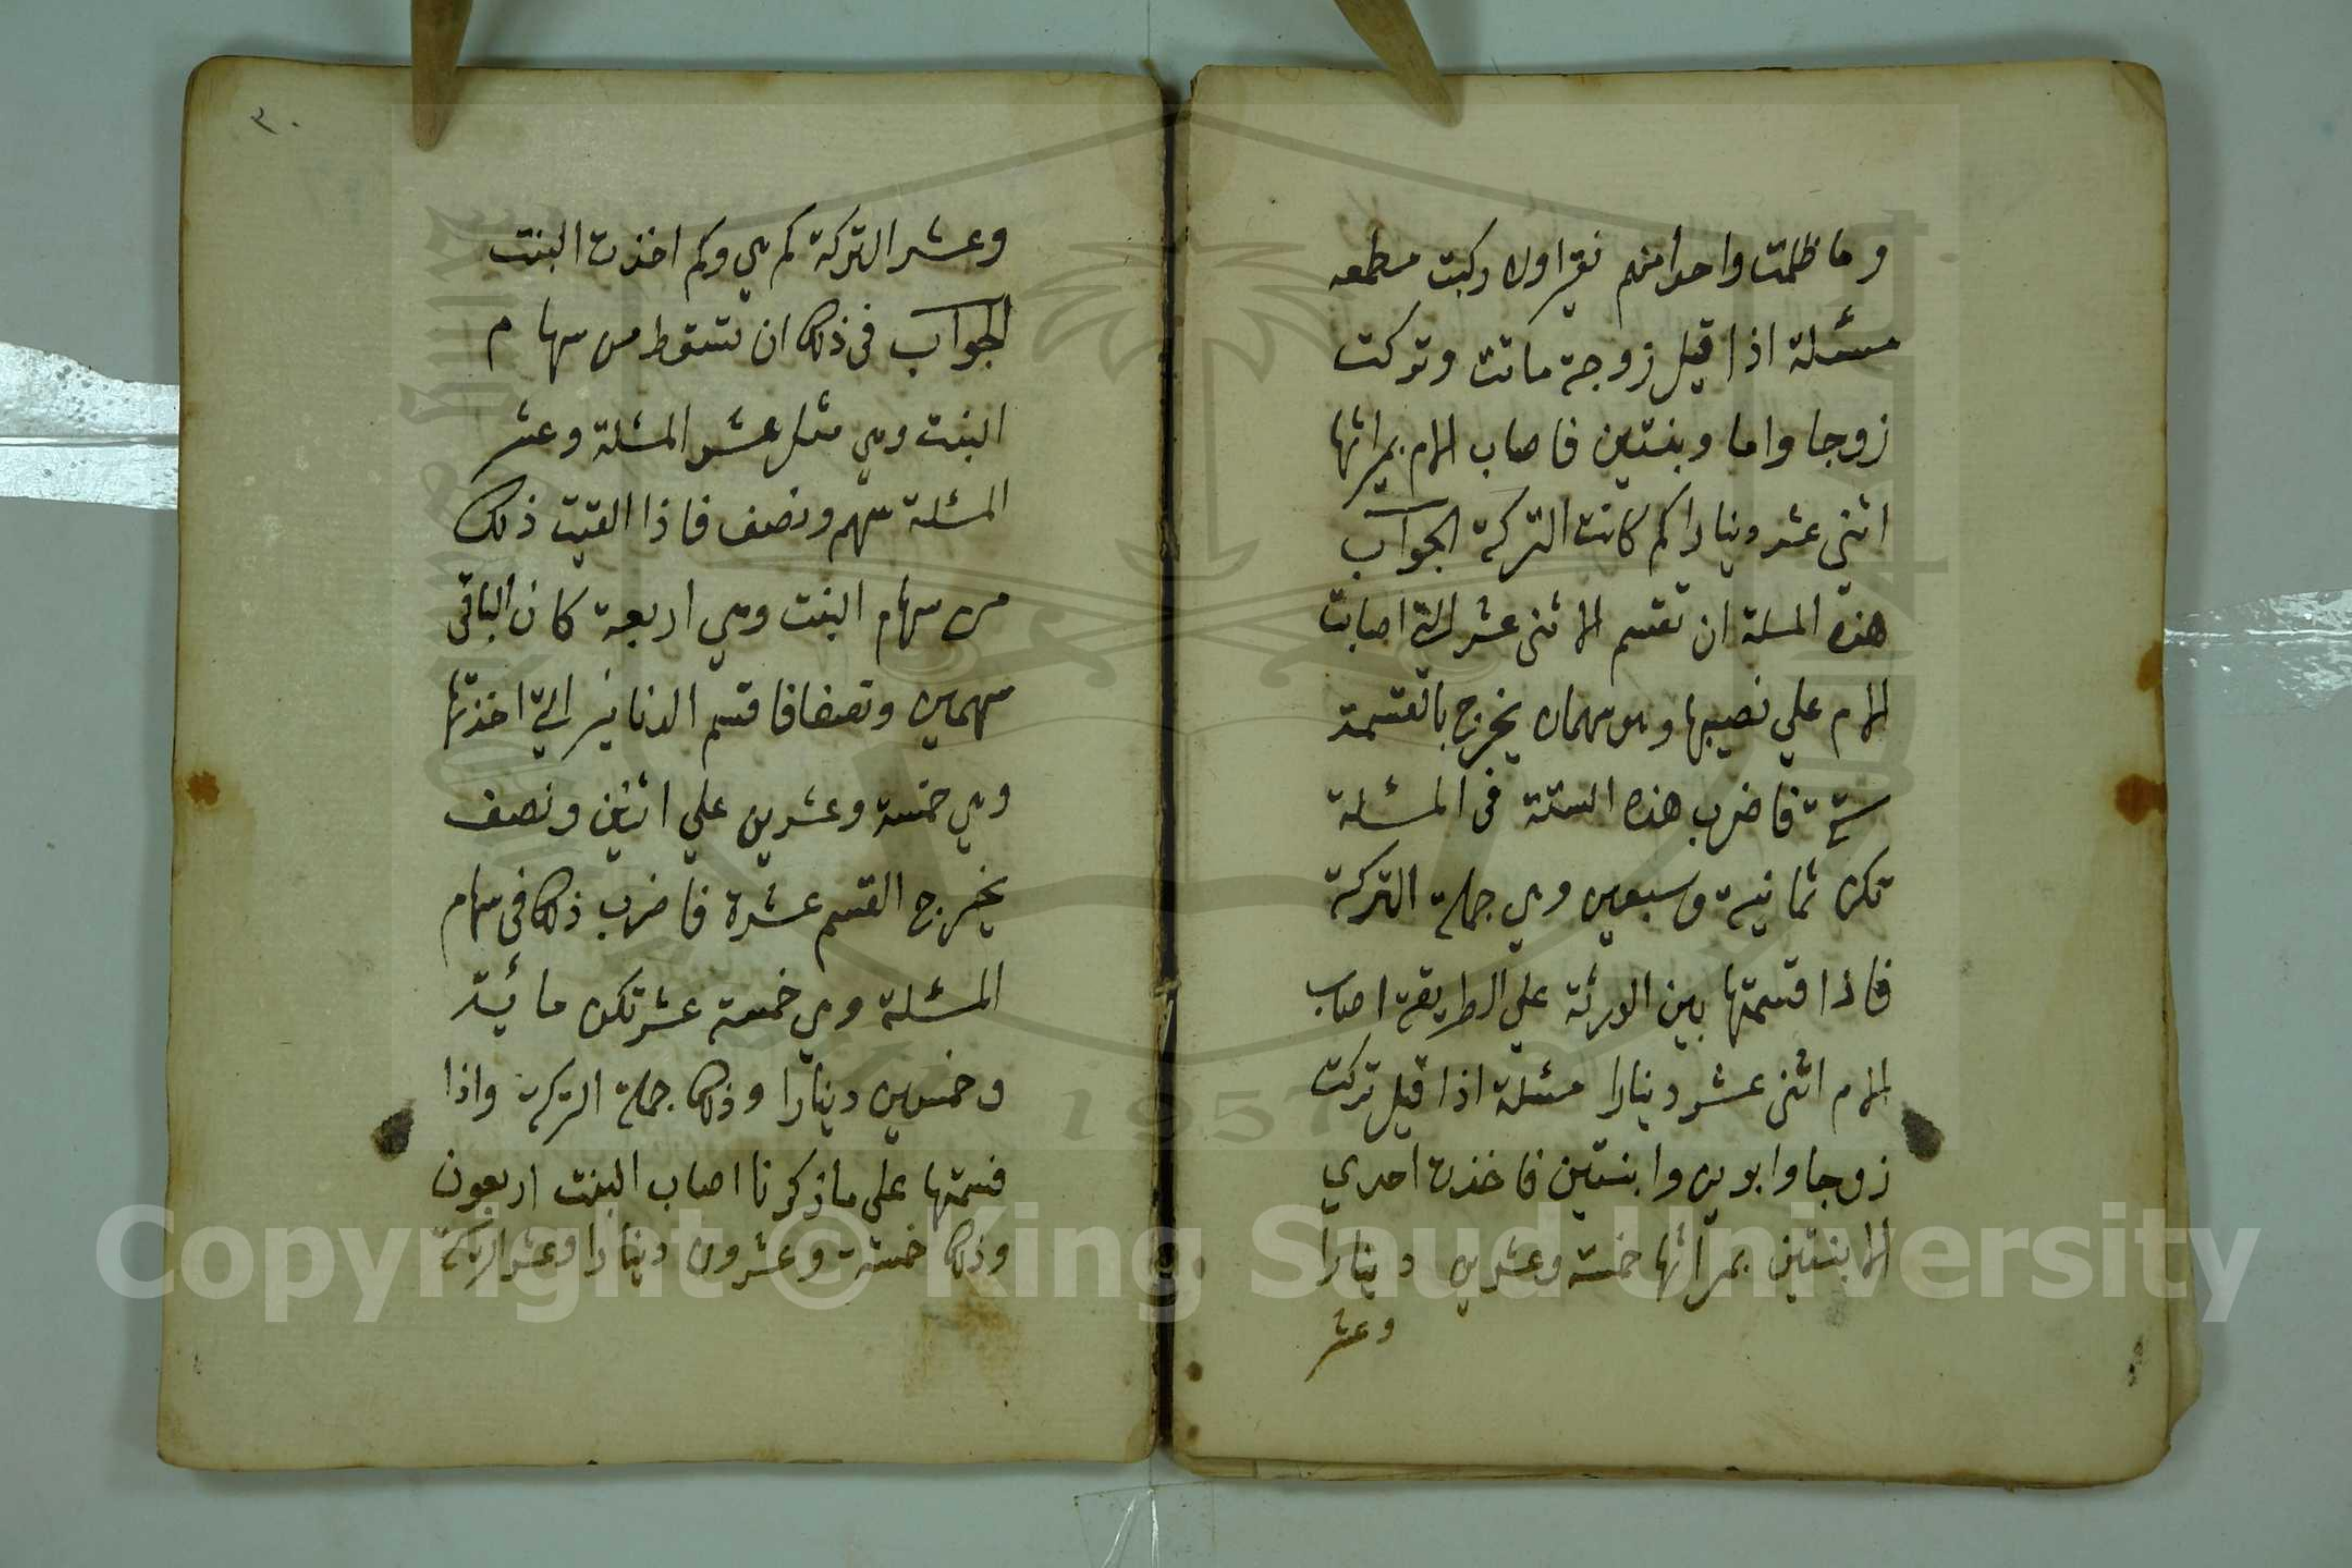 وما ظلمت واحدا منهم نقيرا ولا ركبت مطمعه
مسئلة اذا قيل زوجة ماتت وتركت
زوجا واما وبنتين فاصاب الام بميراثها
اثنى عشر دينارا كم كانت التركة الجواب
هذه المسلة ان تقسم الاثنى عشر التي اصابت
الام علي نصيبها وهو سهمان يخرج بالقسمة
ستة فاضرب هذه الستة فى المسئلة
تكن ثمانية وسبعين وهي جملة التركة
فاذا قسمتها بين الورثة علي الطريقة اصاب
الام اثنى عشر دينارا مسئلة اذا قيل تركت
زوجا وابوين وابنتين فاخذت احدي
الابنتين بميراثها خمسة وعشرين دينارا
وعشر
٣٠
وعشر التركة كم هي وكم اخذت البنت
الجواب فى ذلك ان تسقط من سهام
البنت وهي مثل عشر المسئلة وعشر
المسئلة سهم ونصف فاذا القيت ذلك
من سهام البنت وهي اربعة كان الباقى
سهمين ونصفا فاقسم الدنانير التي اخذتها
وهي خمسة وعشرين علي اثنين ونصف
يخرج القسم عشرة فاضرب ذلك فى سهام
المسئلة وهي خمسة عشر تكن مائية
وخمسين دينارا وذلك جملة التركة واذا
قسمتها على ما ذكرنا اصاب البنت اربعون
وذلك خمسة وعشرون دينارا وعشر التركة
Copyright © King Saud University
1957